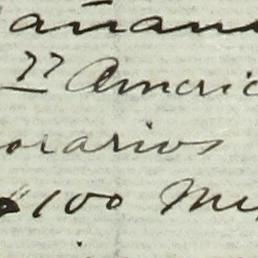 añana
77 Americ
orarios
$100 Me